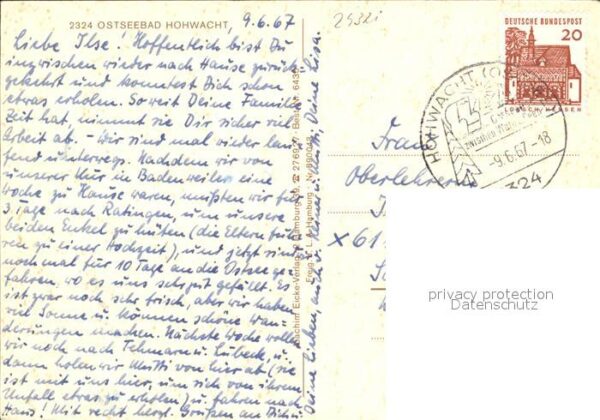 2324 OSTSEEBAD HOHWACHT,
9.6.67
Liebe Ilse! Hoffentlich bist Du
inzwischen wieder nach Hause zurück
gekehrt und konntest Dich schon
etwas erholen. Soweit Deine Familie
Zeit hat, nimmt sie Dir sicher viel
Arbeit ab. - Wir sind mal wieder lau-
fend unterwegs. Nachdem wir von
unserer Kur in Badenweiler eine
Woche zu Hause waren, mußten wir für
3 Tage nach Ratingen, um unsere
beiden Enkel zu hüten (die Eltern fuh-
ren zu einer Hochzeit), und jetzt sind
noch mal für 10 Tage an die Ostsee ge-
fahren, wo es uns sehr gut gefällt. Es
ist zwar noch sehr frisch, aber wir haben
viel Sonne u. können schöne Wan-
derungen machen. Nächste Woche wollen
wir noch nach Fehmarn u. Lübeck, u.
dann holen wir Mutti von hier ab (sie
ist mit uns hier, um sich von ihrem
Unfall etwas zu erholen) u. fahren nach
Haus! Mit recht herzl. Grüßen an Dich u.
Deine Lieben, auch v. Deine Lisa.
Joachim Eicke-Verlag Hamburg
2932i
DEUTSCHE BUNDESPOST
20
HOHWACHT
-9.6.67-18
2324
Frau
Oberlehrerin
x 61
privacy protection
Datenschutz